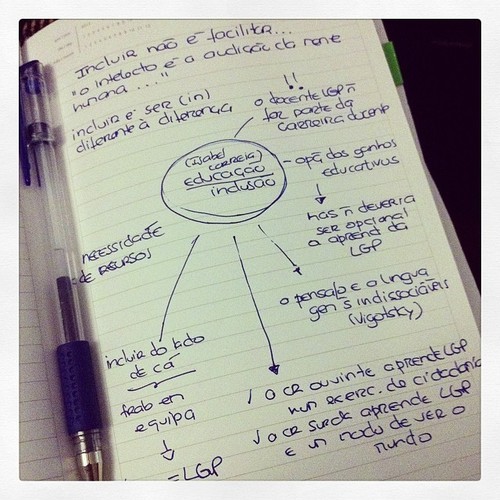 Incluir não é facilitar...
"o intelecto é a audição da mente
humana ..."
incluir é ser (in)
diferente à diferença
!!
o docente LGP ñ
faz parte da
carreira docente
(Isabel
Correia)
educação
inclusão
- dos ganhos
educativos
mas ñ deveria
ser opcional
a aprend da
LGP
necessidade
de recursos
o pensato e a lingua
gem s indissociáveis
(Vigotsky)
incluir do lado
de cá
trab em
equipa
= LGP
√ a cr ouvinte aprende LGP
num exerc. de cidadania
√ a cr surda aprende LGP
e um modo de ver o
mundo